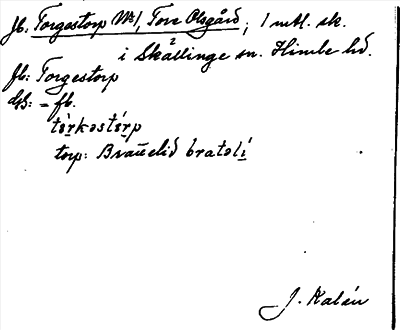 fb. Torgestorp No1, Tore Olsgård; 1 mtl. sk.
i Skällinge sn. Himle hd.
fb: Torgestorp
dsb: - fb.
tèrkəstèrp
torp: Bratelid bratəlì
J. Kalén